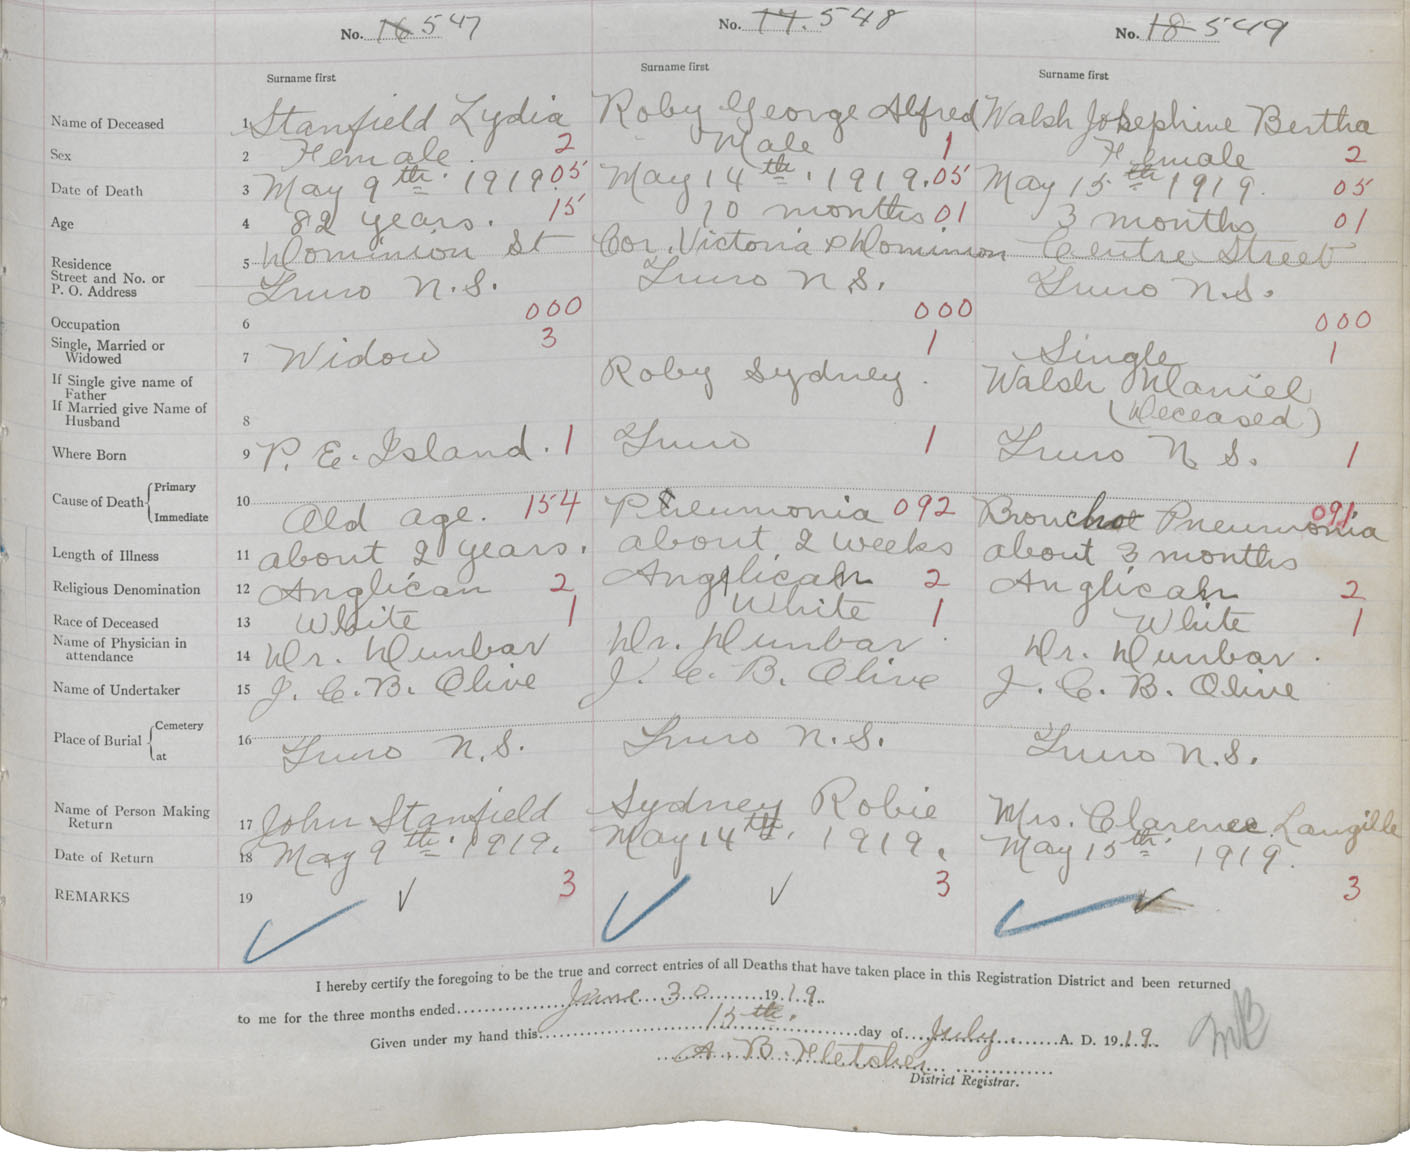 No. 16 547
No. 17. 548
No. 18 549
Surname first
Surname first
Surname first
Name of Deceased 1 Stanfield Lydia Roby George Alfred Walsh Josephine Bertha
Sex 2 Female. 2 Male 1 Female 2
Date of Death 3 May 9th. 1919. 05 May 14th. 1919. 05 May 15th 1919. 05
Age 4 82 years. 15 10 months 01 3 months 01
Residence 5 Dominion St Cor. Victoria & Dominion Centre Street
Street and No. or
P. O. Address Truro N.S. Truro N.S. Truro N.S.
Occupation 6 000 000 000
Single, Married or
Widowed 7 Widow 3 1 Single 1
If Single give name of
Father Roby Sydney. Walsh Daniel
If Married give Name of
Husband 8 (Deceased)
Where Born 9 P. E. Island. 1 Truro 1 Truro N.S. 1
Cause of Death Primary
Immediate 10 Old age. 154 Pneumonia 092 Broncho Pneumonia 091
Length of Illness 11 about 2 years. about 2 weeks about 3 months
Religious Denomination 12 Anglican 2 Anglican 2 Anglican 2
Race of Deceased 13 White 1 White 1 White 1
Name of Physician in
attendance 14 Dr. Dunbar Dr. Dunbar. Dr. Dunbar.
Name of Undertaker 15 J. C. B. Olive J. C. B. Olive J. C. B. Olive
Place of Burial Cemetery
at 16 Truro N.S. Truro N.S. Truro N.S.
Name of Person Making
Return 17 John Stanfield Sydney Robie Mrs. Clarence Langille
Date of Return 18 May 9th. 1919. May 14th. 1919. May 15th. 1919.
REMARKS 19 3 3 3
I hereby certify the foregoing to be the true and correct entries of all Deaths that have taken place in this Registration District and been returned
to me for the three months ended June 30 1919.
Given under my hand this 15th. day of July. A. D. 1919.
A. B. Fletcher
District Registrar.
MB